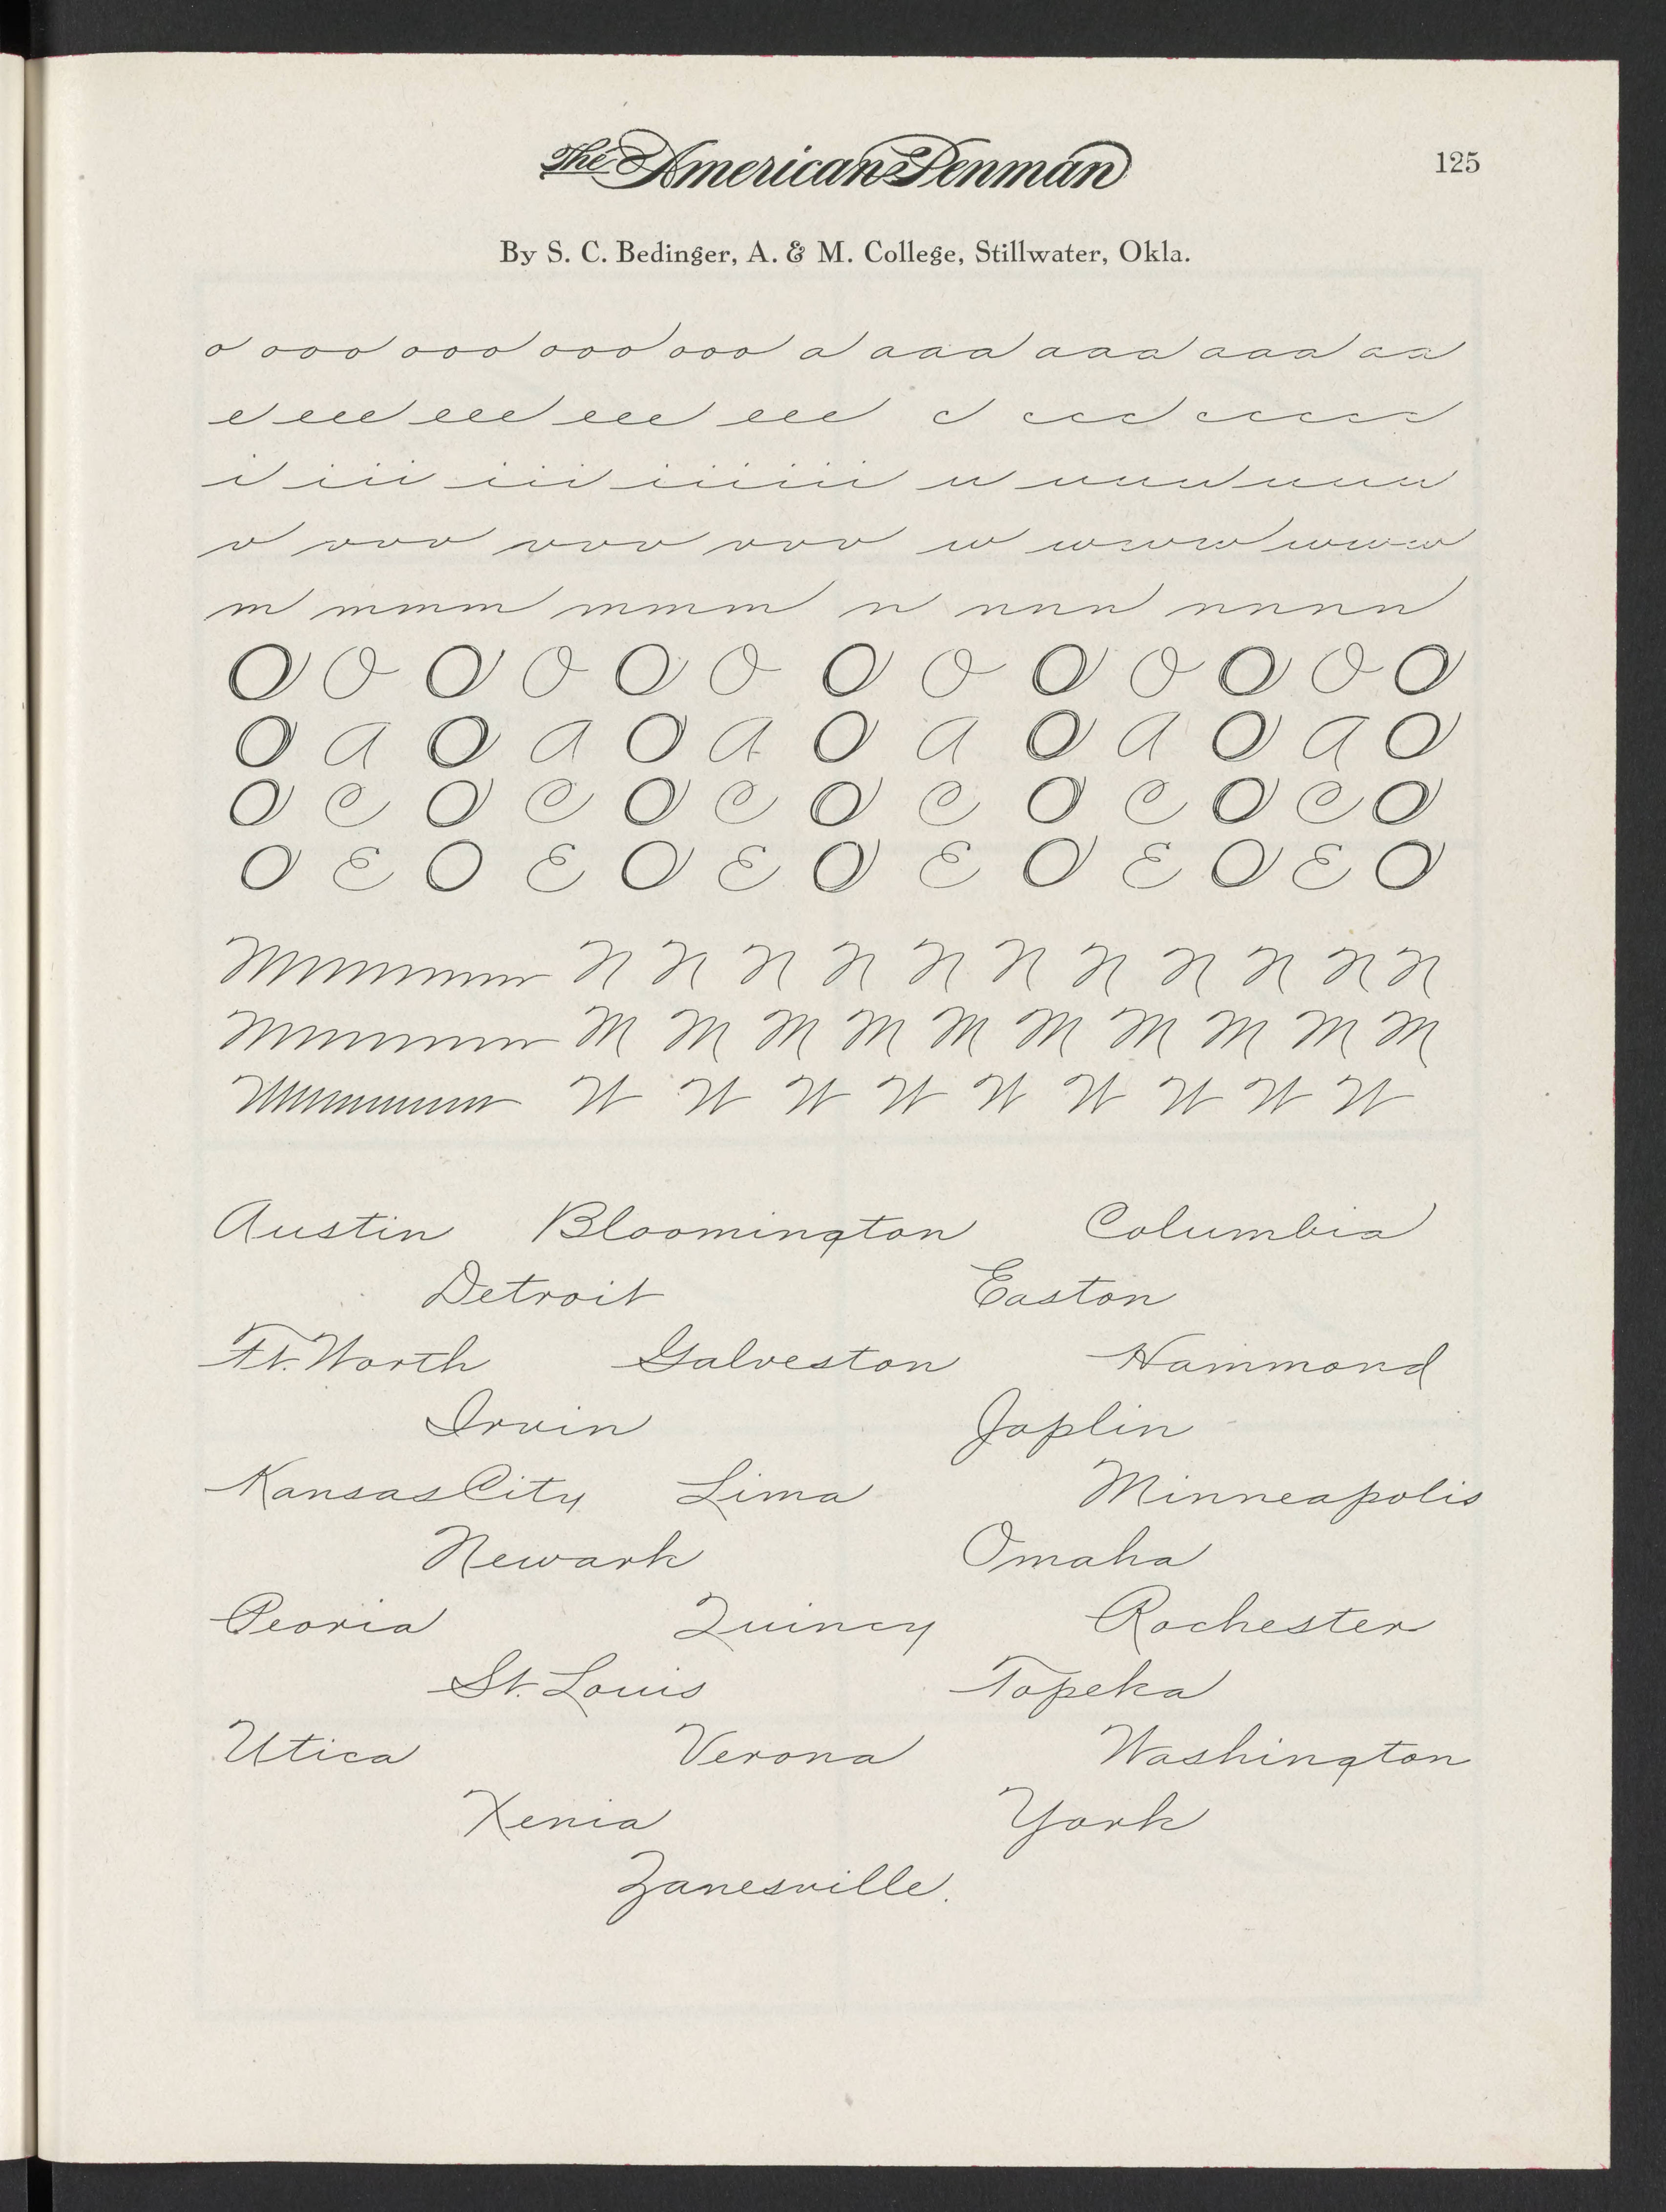 The American Penman
125
By S. C. Bedinger, A. & M. College, Stillwater, Okla.
o ooo ooo ooo ooo a aaa aaa aaa aa
e eee eee eee eee c ccc ccccc
i iii iii iiiiii u uuuu uuuu
v vvv vvv vvv w wwww wwww
m mmm mmm n nnn nnnn
O O O O O O O O O O O O O
O A O A O A O A O A O A O
O C O C O C O C O C O C O
O E O E O E O E O E O E O
N N N N N N N N N N N
M M M M M M M M M M
W W W W W W W W W
Austin Bloomington Columbia
Detroit Easton
Ft. Worth Galveston Hammond
Irvin Joplin
Kansas City Lima Minneapolis
Newark Omaha
Peoria Quincy Rochester
St. Louis Topeka
Utica Verona Washington
Xenia York
Zanesville.